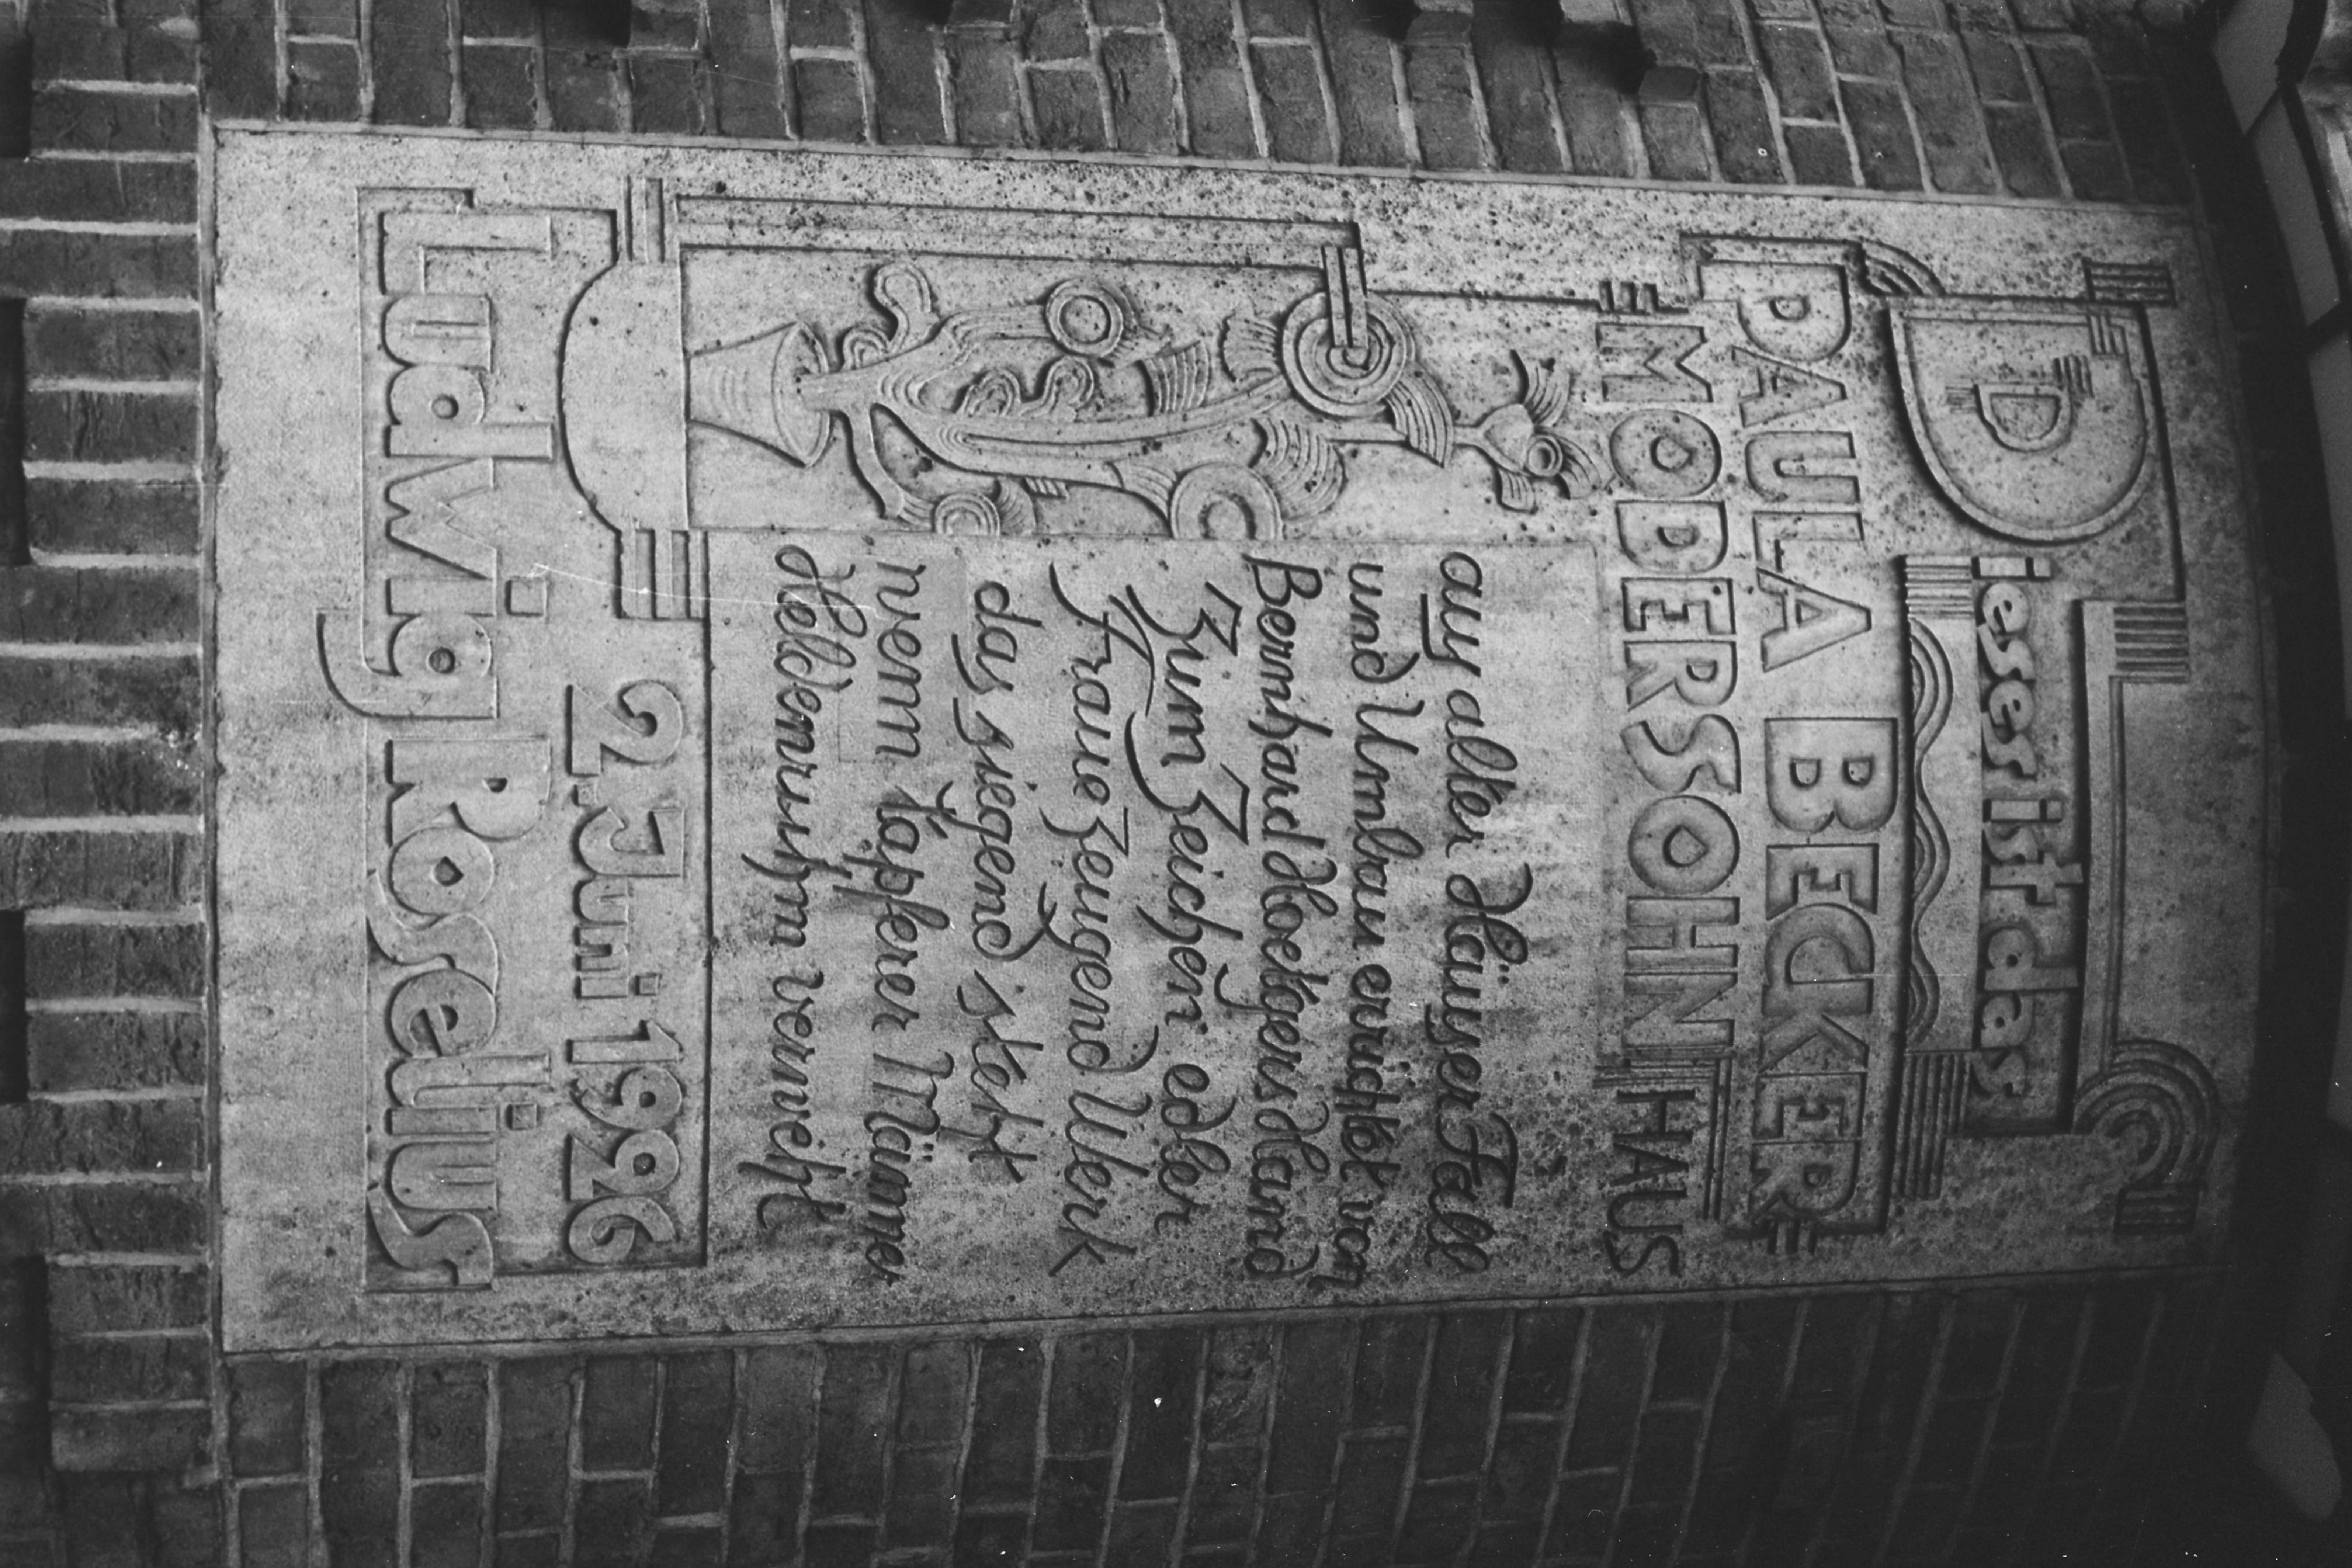 Dieses ist das
PAULA BECKER
MODERSOHN HAUS
aus alter Häuser Fall
und Umbau errichtet von
Bernhard Hoetgers Hand
Zum Zeichen edler
Fraue zeugend Werk
das siegend steht
wenn tapfrer Männer
Heldenruhm verweht
2. Juni 1926
Ludwig Roselius